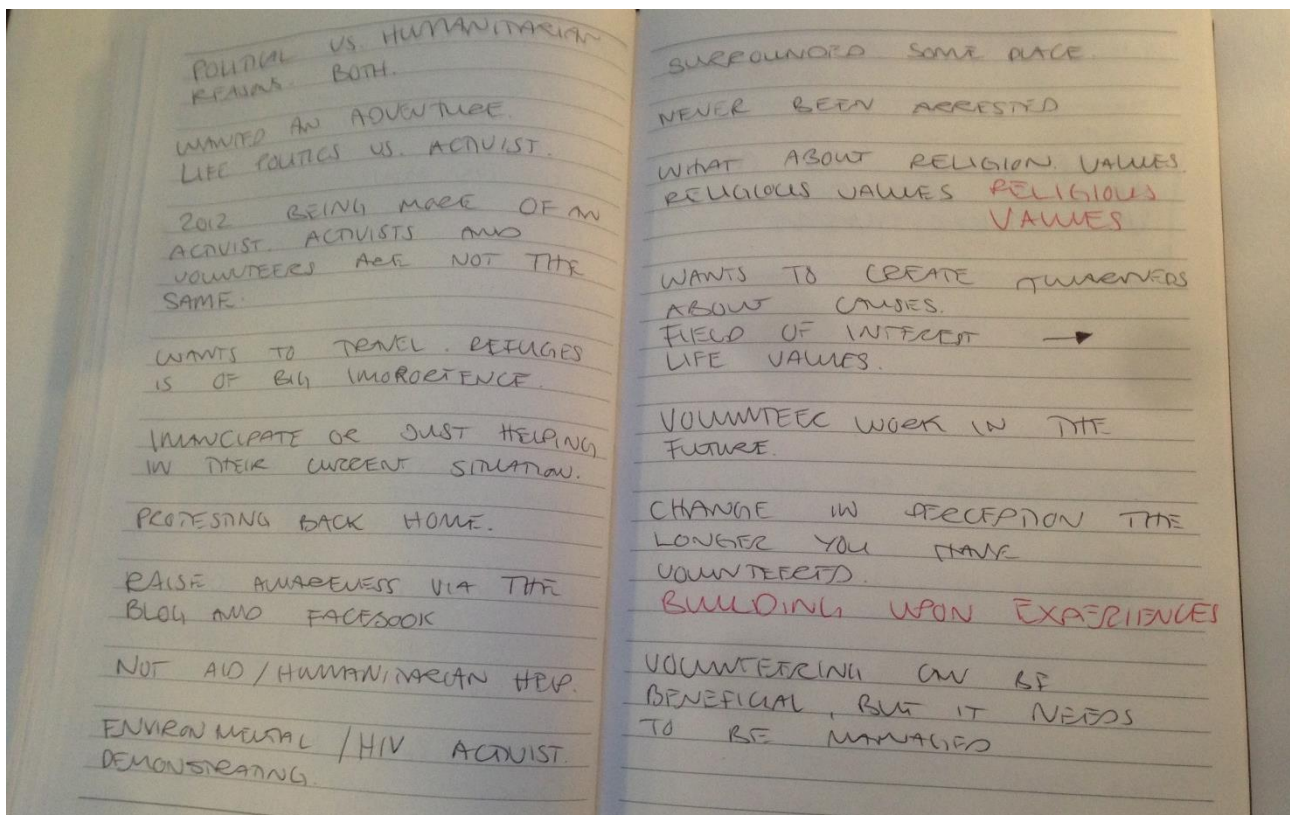 POLITICAL VS HUMANITARIAN
REMAINS BOTH.
WANTED AN ADVENTURE.
LIFE POLITICS VS. ACTIVIST.
2012 BEING MORE OF AN
ACTIVIST. ACTIVISTS AND
VOLUNTEERS ARE NOT THE
SAME.
WANTS TO TRAVEL. REFUGES
IS OF BIG IMORORTENCE.
IMANCIPATE OR JUST HELPING
IN THEIR CURRENT SITUATION.
PROTESTING BACK HOME.
RAISE AWARENESS VIA THE
BLOG AND FACEBOOK
NOT AID/HUMANITARIAN HELP.
ENVIRONMENTAL/HIV ACTIVIST.
DEMONSTRATING.
SURROUNDED SOME PLACE.
NEVER BEEN ARRESTED
WHAT ABOUT RELIGION. VALUES.
RELIGIOUS VALUES RELIGIOUS
VALUES
WANTS TO CREATE
ABOUT CAUSES.
FIELD OF INTEREST →
LIFE VALUES.
VOLUNTEER WORK IN THE
FUTURE.
CHANGE IN PERCEPTION THE
LONGER YOU HAVE
VOLUNTEERED.
BUILDING UPON EXPERIENCES
VOLUNTEERING CAN BE
BENEFICIAL, BUT IT NEEDS
TO BE MANAGED